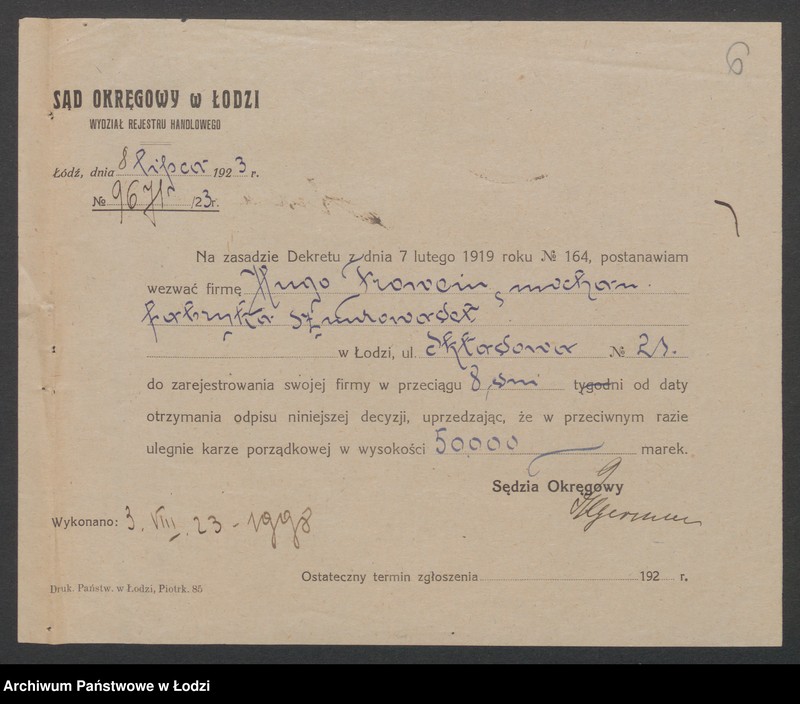 6
SĄD OKRĘGOWY w ŁODZI
WYDZIAŁ REJESTRU HANDLOWEGO
Łódź, dnia 8 lipca 1923 r.
№ /23 r.
Na zasadzie Dekretu z dnia 7 lutego 1919 roku № 164, postanawiam
wezwać firmę Hugo Frowein, mechan.
fabryka sznurowadeł
w Łodzi, ul. Składowa №
do zarejestrowania swojej firmy w przeciągu 8 dni tygodni od daty
otrzymania odpisu niniejszej decyzji, uprzedzając, że w przeciwnym razie
ulegnie karze porządkowej w wysokości 50000 marek.
Sędzia Okręgowy
Wykonano: 3. VIII. 23 -
Ostateczny termin zgłoszenia 192 r.
Druk. Państw. w Łodzi, Piotrk. 85
Archiwum Państwowe w Łodzi